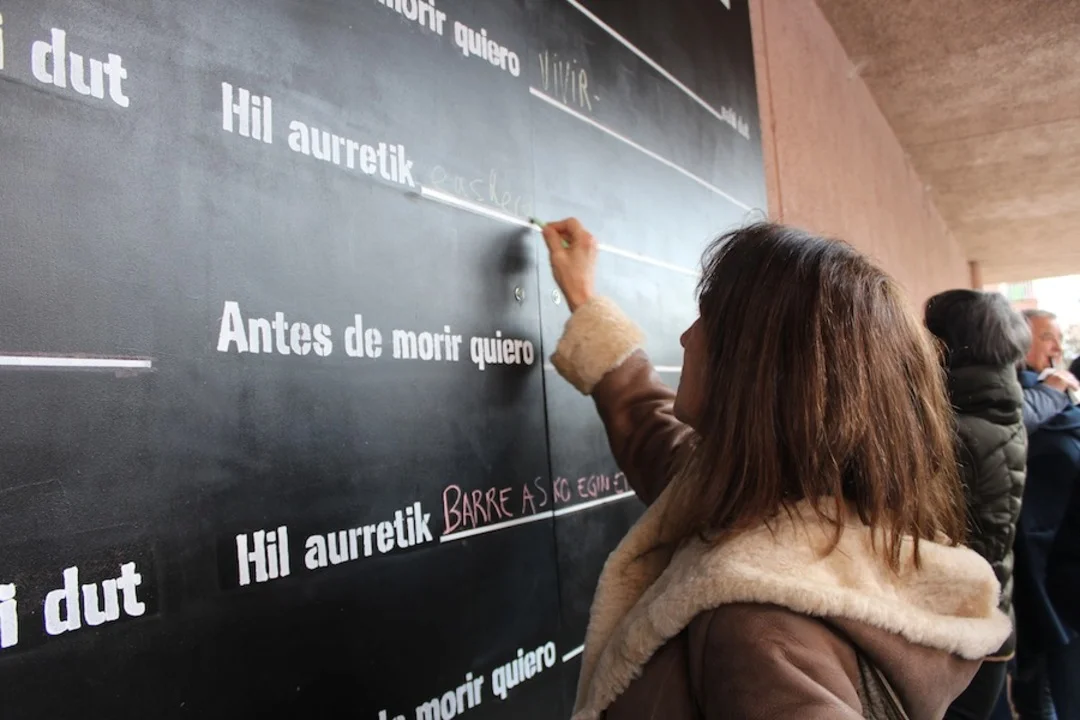 morir quiero VIVIR-
i dut
Hil aurretik
Antes de morir quiero
Hil aurretik BARRE ASKO EGIN
i dut
morir quiero